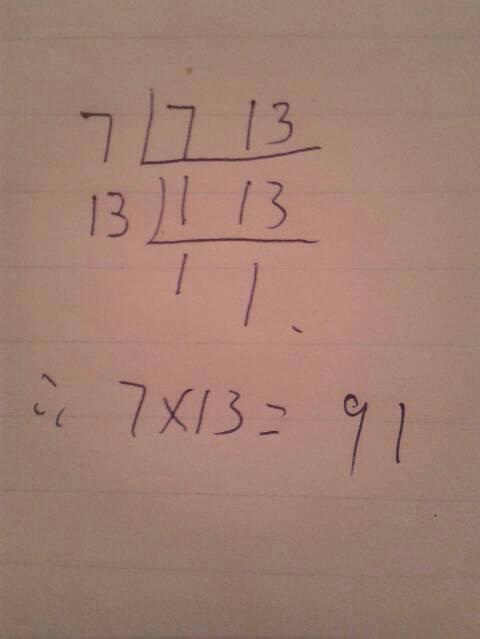 7 7 13
13 1 13
1 1.
∴ 7×13= 91